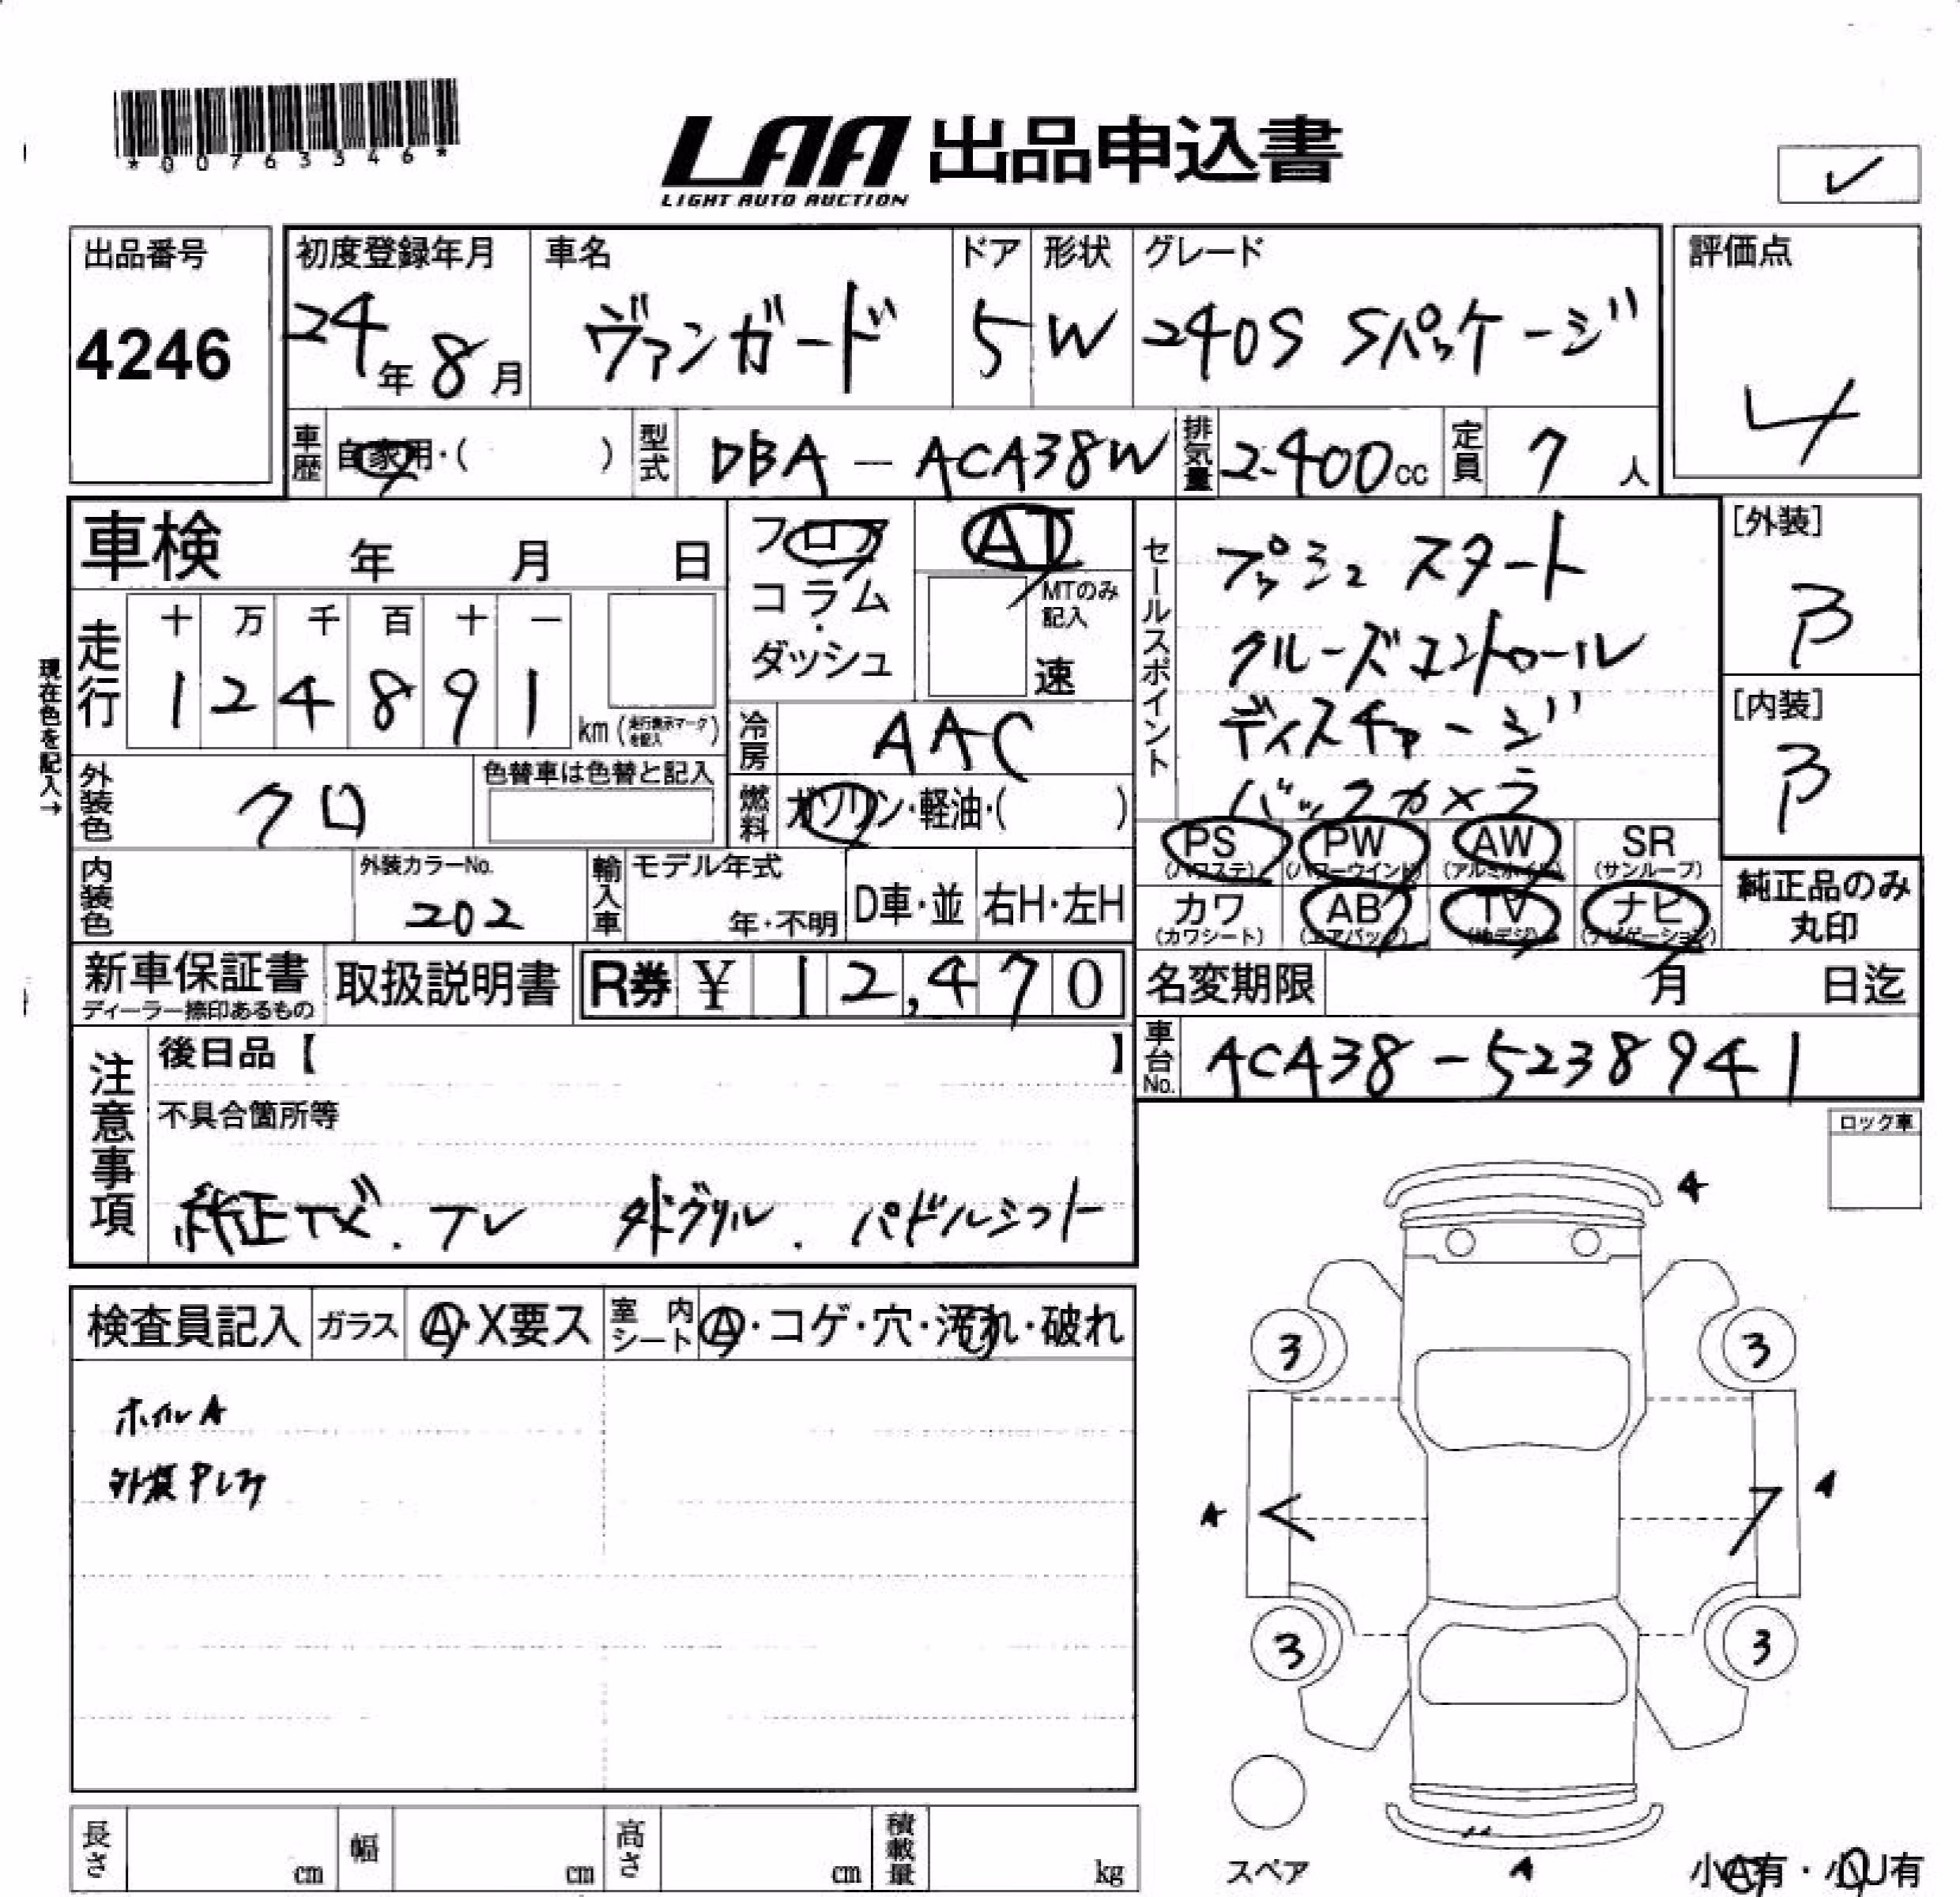 *00763346*
LAA 出品申込書
LIGHT AUTO AUCTION
✓
出品番号
4246
初度登録年月
24年8月
車名
ヴァンガード
ドア
5
形状
W
グレード
240S Sパッケージ
評価点
4
車歴
自家用・( )
型式
DBA-ACA38W
排気量
2400cc
定員
7人
車検 年 月 日
現在色を記入→
走行
十 万 千 百 十 一
1 2 4 8 9 1
km(走行表示マークを記入)
フロア
コラム
・
ダッシュ
AT
MTのみ記入
速
冷房
AAC
燃料
ガソリン・軽油・( )
外装色
クロ
色替車は色替と記入
内装色
外装カラーNo.
202
輸入車
モデル年式
年・不明
D車・並
右H・左H
セールスポイント
プッシュスタート
クルーズコントロール
ディスチャージ
バックカメラ
[外装]
B
[内装]
B
PS (パワステ)
PW (パワーウインド)
AW (アルミホイル)
SR (サンルーフ)
カワ (カワシート)
AB (エアバッグ)
TV (地デジ)
ナビ (ナビゲーション)
純正品のみ
丸印
新車保証書
ディーラー捺印あるもの
取扱説明書
R券 ¥ 12,470
名変期限 月 日迄
車台No.
ACA38-5238941
注意事項
後日品【 】
不具合箇所等
純正ナビ.TV 木ドグリル.パドルシフト
ロック車
検査員記入
ガラス
A・X要ス
室内シート
A・コゲ・穴・汚れ・破れ
ホイルA
外装P
A
3 3
A A
3 3
A
スペア
小A有・小U有
長さ cm
幅 cm
高さ cm
積載量 kg